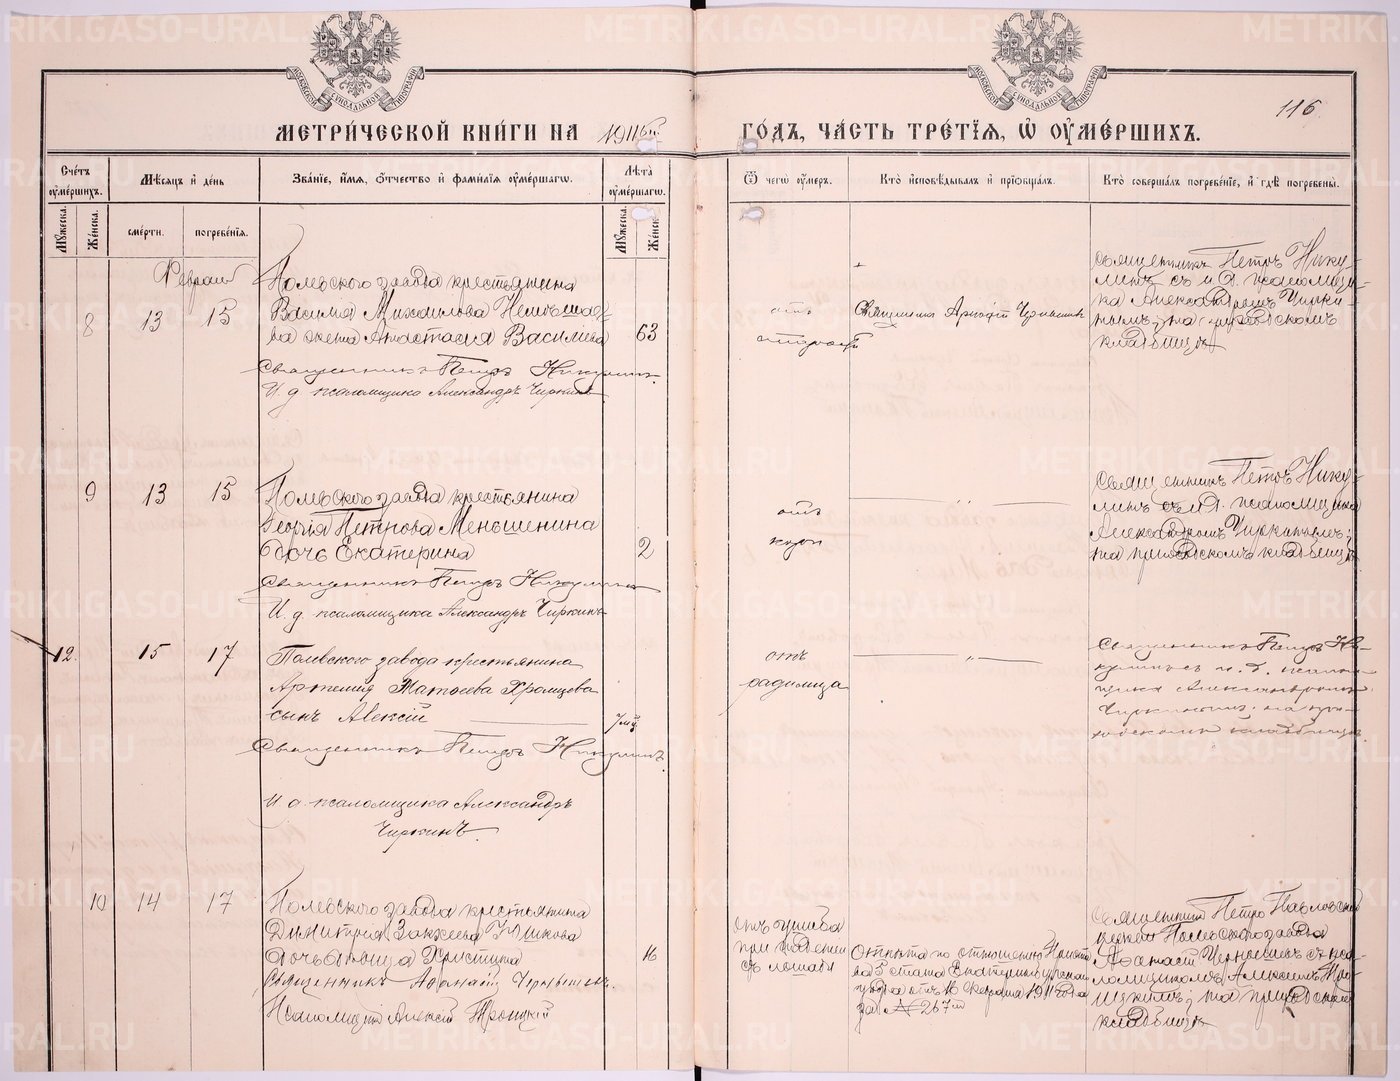 МЕТРИ́ЧЕСКОЙ КНИ́ГИ НА 1911й
ГО́ДЪ, ЧА́СТЬ ТРЕ́ТЇѦ, Ѡ҆ ОУ҆МЕ́РШИХЪ.
116
Сче́тъ оу҆ме́ршихъ.
Мѣ́сяцъ и҆ де́нь
Зва́нїе, и҆́мѧ, ѻ҆́тчество и҆ фами́лїѧ оу҆ме́ршагѡ.
Лѣ́та оу҆ме́ршагѡ.
Ѿ чегѡ̀ оу҆́меръ.
Кто̀ и҆сповѣ́дывалъ и҆ прїѡбща́лъ.
Кто̀ соверша́лъ погребе́нїе, и҆ гдѣ̀ погребены̀.
Му́жеска.
Же́нска.
сме́рти.
погребе́нїѧ.
Му́жеска.
Же́нск
Февраль
8 13 15
Полевского завода крестьянина
Василія Михаилова
жена Анастасія Василіева 63
Священникъ Петръ Никулинъ
И. д. псаломщика Александръ Чиркинъ
отъ
старости
Священникъ Аркадій
Священникъ Петръ Нику-
линъ съ и. д. псаломщи-
ка Александромъ Чирки-
нымъ; на приходскомъ
кладбищѣ
9 13 15
Полевского завода крестьянина
Георгія Петрова Меньшенина
дочь Екатерина 2
Священникъ Петръ Никулинъ
И. д. псаломщика Александръ Чиркинъ
отъ
кори
Священникъ Петръ Нику-
линъ съ и. д. псаломщика
Александромъ Чиркинымъ;
на приходскомъ кладбищѣ
12. 15 17
Полевского завода крестьянина
Артемія Матѳеева Хромцова
сынъ Алексій 7 мц.
Священникъ Петръ Никулинъ
И. д. псаломщика Александръ
Чиркинъ.
отъ
родимца
Священникъ Петръ Ни-
кулинъ съ и. д. псалом-
щика Александромъ
Чиркинымъ; на при-
ходскомъ кладбищѣ
10 14 17
Полевского завода крестьянина
Димитрія Закхеева
дочь дѣвица Христина 16
Священникъ Аѳанасій Чернышевъ
Псаломщикъ Алексій Троицкій
отъ ушиба
при паденіи
съ лошади
Открыта по отношенію Приста-
ва 5 стана Екатеринбургскаго
уѣзда отъ 16 Февраля 1911 года
за № 267м
Священникъ Петро Павловской
церкви Полевскаго завода
Аѳанасій Чернышевъ съ пса-
ломщикомъ Алексіемъ Трои-
цкимъ; на приходскомъ
кладбищѣ